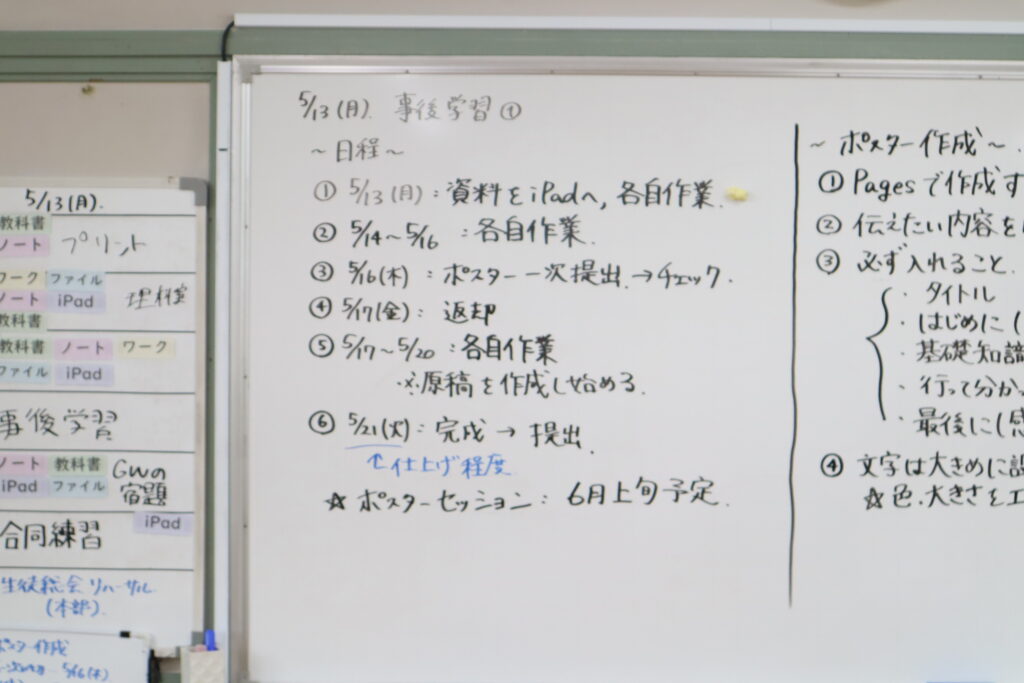 5/13(月).
教科書
ノート プリント
ワーク ファイル
ノート iPad 理科室
教科書
教科書 ノート ワーク
ファイル iPad
事後学習
ノート 教科書 GWの
iPad ファイル 宿題
iPad
合同練習
生徒総会リハーサル
(本部).
ポスター作成
5/16(木)
5/13(月). 事後学習①
~日程~
① 5/13(月):資料をiPadへ, 各自作業.
② 5/14~5/16 :各自作業.
③ 5/16(木) : ポスター一次提出.→チェック.
④ 5/17(金): 返却
⑤ 5/17~5/20 :各自作業
※原稿を作成し始める.
⑥ 5/21(火): 完成 → 提出.
↑仕上げ程度
☆ ポスターセッション: 6月上旬予定.
~ ポスター作成~.
① Pagesで作成す
② 伝えたい内容を
③ 必ず入れること.
・タイトル
・はじめに(
・基礎知識
・行って分か
・最後に(感
④ 文字は大きめに
☆色.大きさを工